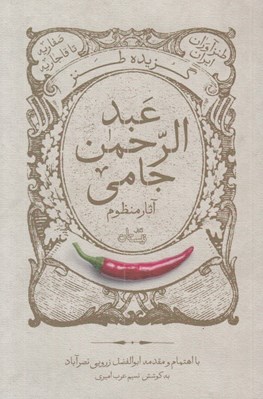 طنزآوران ایران
صفاریه تا قاجاریه
گزیده طنز
عبد
الرّحمن
جامی
آثار منظوم
نیستان
با اهتمام و مقدمه ابوالفضل زرویی نصرآباد
به کوشش نسیم عرب امیری